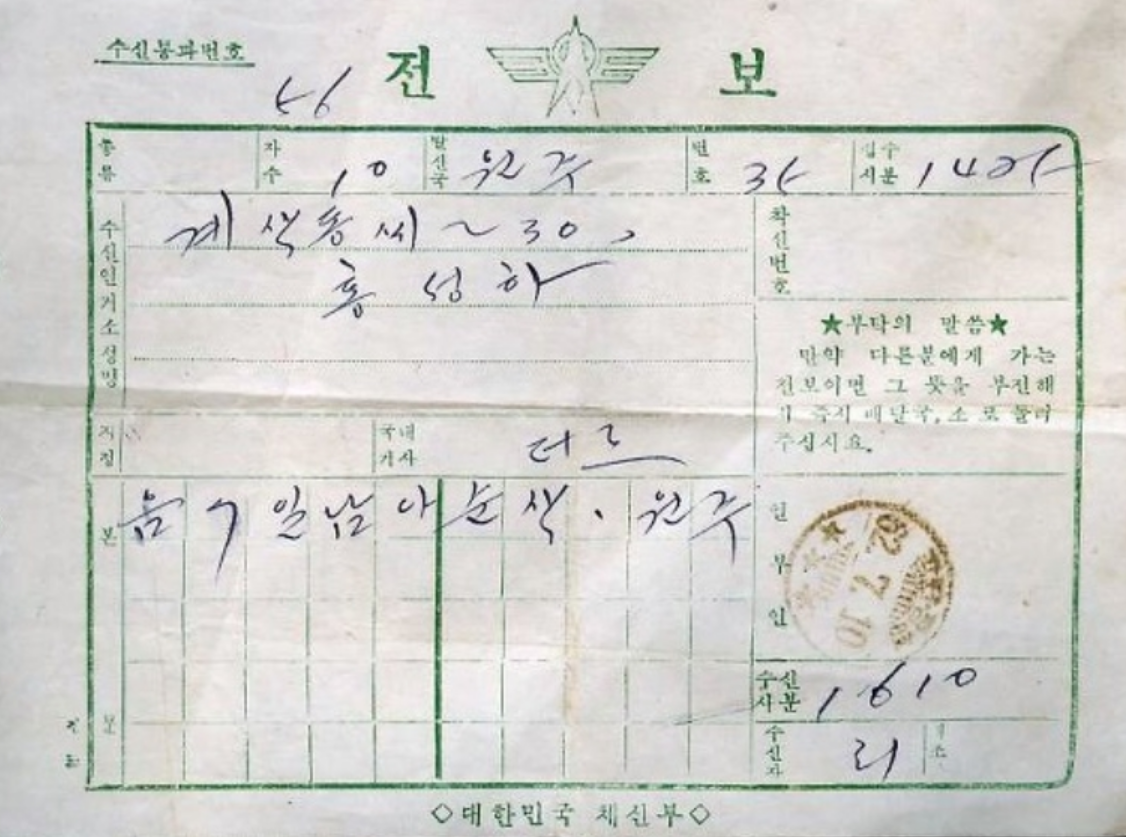 수신통과번호
전 보
56
종류 자수 10 발신국 원주 번호 35 접수시분
수신인거소성명
계색동씨~30,
홍성하
착신번호
★부탁의 말씀★
만약 다른분에게 가는
전보이면 그 뜻을 부전해
서 즉시 배달국,소로 돌려
주십시요.
지정 국내기사
본문
음7일남아순색.원주
일부인
62 7 10
수신시분 1610
수신자
◇대한민국 체신부◇